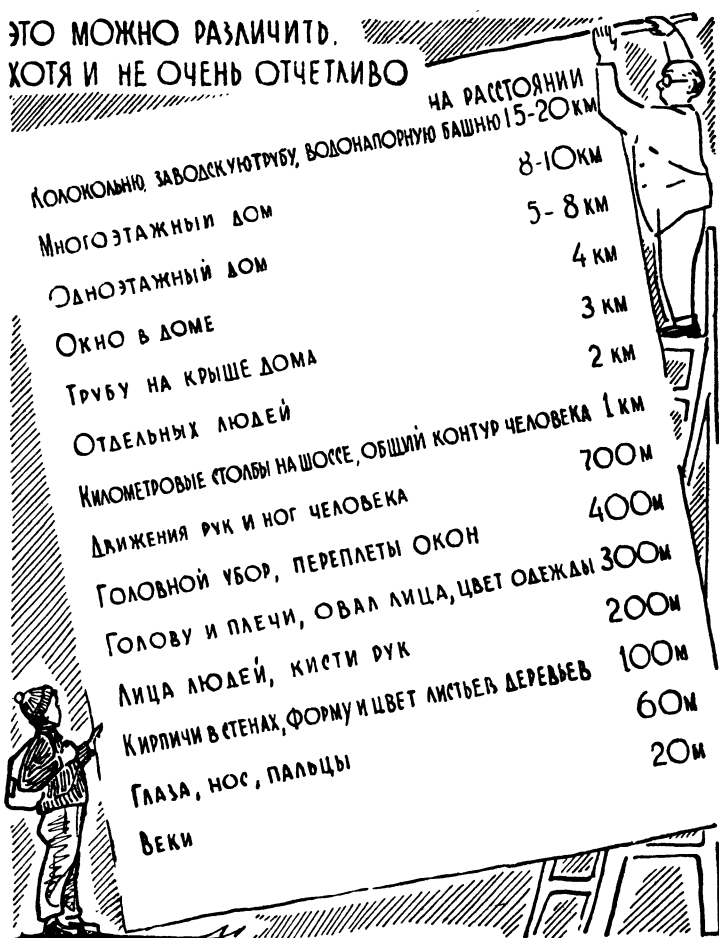 ЭТО МОЖНО РАЗЛИЧИТЬ,
ХОТЯ И НЕ ОЧЕНЬ ОТЧЕТЛИВО
НА РАССТОЯНИИ
КОЛОКОЛЬНЮ, ЗАВОДСКУЮ ТРУБУ, ВОДОНАПОРНУЮ БАШНЮ 15-20 КМ
МНОГОЭТАЖНЫЙ ДОМ 8-10 КМ
ОДНОЭТАЖНЫЙ ДОМ 5-8 КМ
ОКНО В ДОМЕ 4 КМ
ТРУБУ НА КРЫШЕ ДОМА 3 КМ
ОТДЕЛЬНЫХ ЛЮДЕЙ 2 КМ
КИЛОМЕТРОВЫЕ СТОЛБЫ НА ШОССЕ, ОБЩИЙ КОНТУР ЧЕЛОВЕКА 1 КМ
ДВИЖЕНИЯ РУК И НОГ ЧЕЛОВЕКА 700 М
ГОЛОВНОЙ УБОР, ПЕРЕПЛЕТЫ ОКОН 400 М
ГОЛОВУ И ПЛЕЧИ, ОВАЛ ЛИЦА, ЦВЕТ ОДЕЖДЫ 300 М
ЛИЦА ЛЮДЕЙ, КИСТИ РУК 200 М
КИРПИЧИ В СТЕНАХ, ФОРМУ И ЦВЕТ ЛИСТЬЕВ ДЕРЕВЬЕВ 100 М
ГЛАЗА, НОС, ПАЛЬЦЫ 60 М
ВЕКИ 20 М